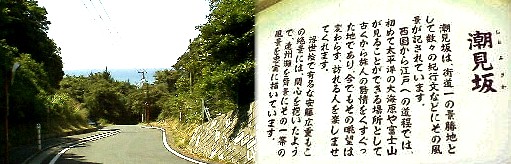 潮見坂
しおみざか
潮見坂は、街道一の景勝地と
して数々の紀行文などにその風
景が記されています。
西国から江戸への道程では、
初めて太平洋の大海原や富士山
が見ることができる場所として
古くから旅人の詩情をくすぐっ
た地であり、今でもその眺望は
変わらず、訪れる人を楽しませ
てくれます。
浮世絵で有名な安藤広重もこ
の絶景には、関心を抱いたよう
で、遠州灘を背景にその一帯の
風景を忠実に描いています。